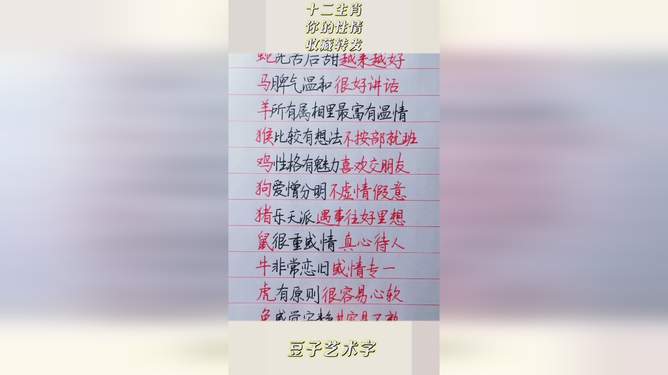 十二生肖
你的性情
收藏转发
蛇先苦后甜越来越好
马脾气温和很好讲话
羊所有属相里最富有温情
猴比较有想法不按部就班
鸡性格有魅力喜欢交朋友
狗爱憎分明不虚情假意
猪乐天派遇事往好里想
鼠很重感情真心待人
牛非常恋旧感情专一
虎有原则很容易心软
兔感觉
豆子艺术字